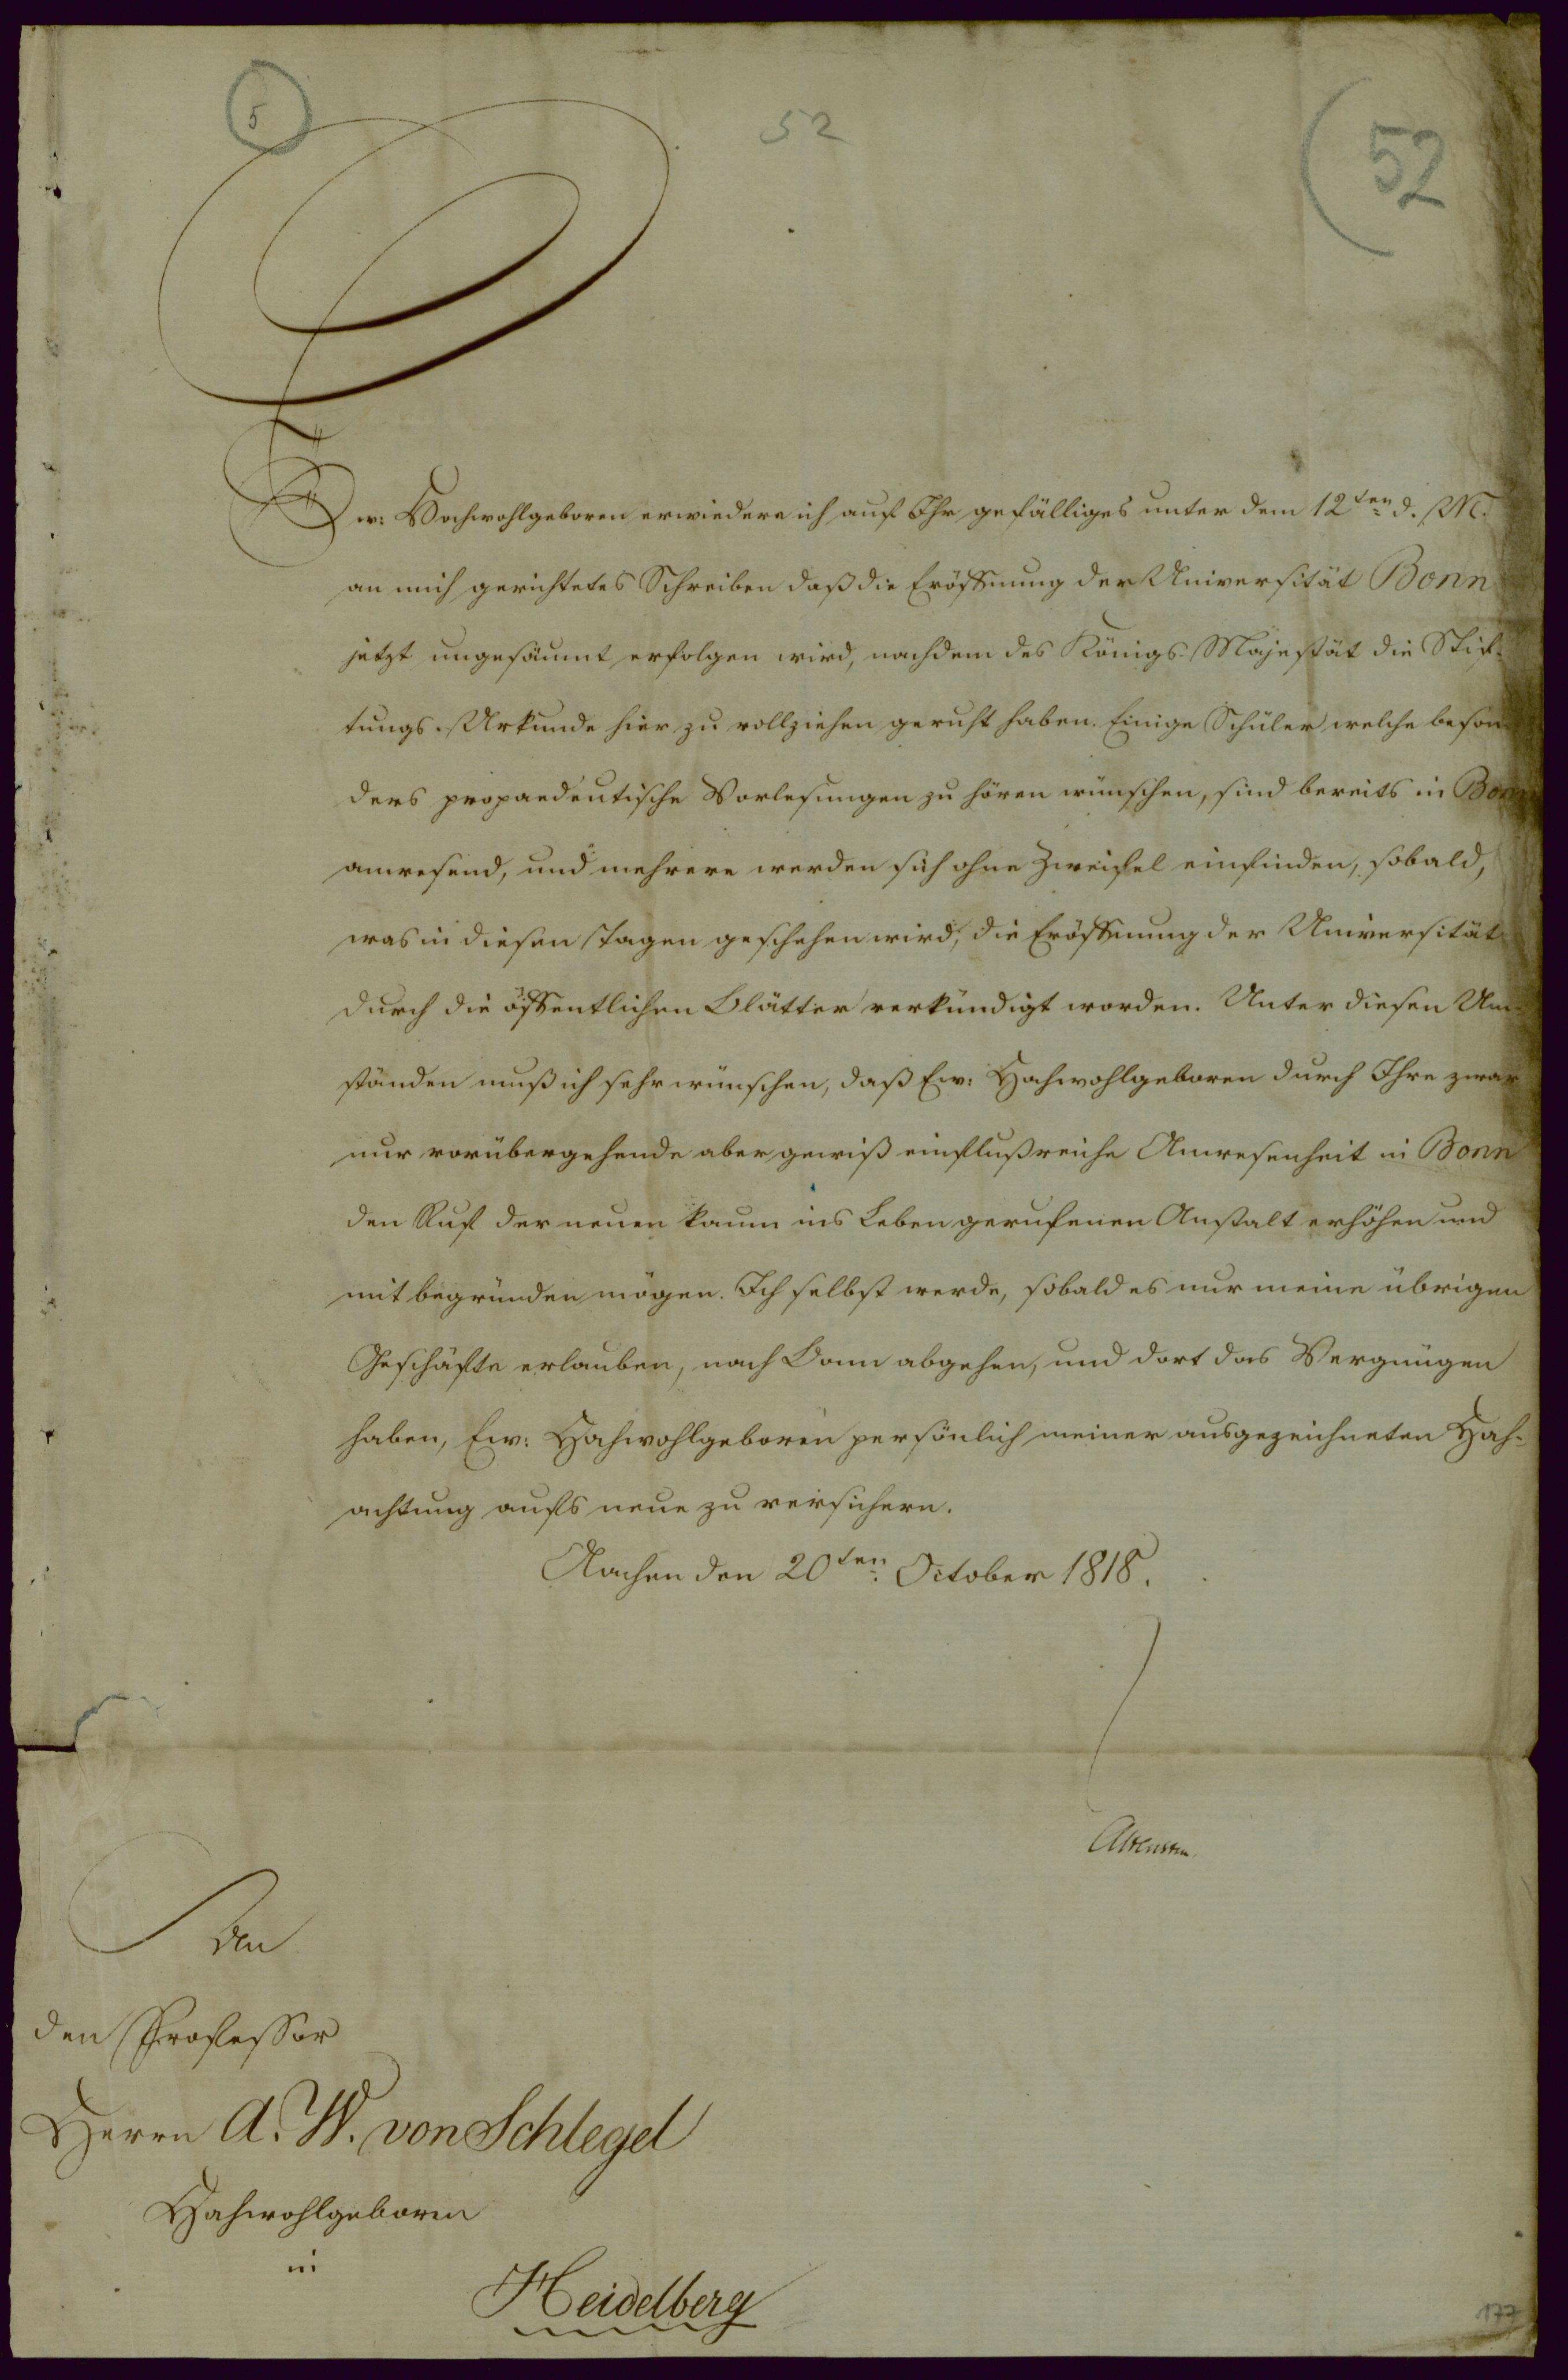 5
52
52
Ew: Hochwohlgeboren erwiedere ich auf Ihr gefälliges unter dem 12ten d. M.
an mich gerichtetes Schreiben daß die Eröffnung der Universität Bonn
jetzt ungesäumt erfolgen wird, nachdem des Königs Majestät die Stif-
tungs-Urkunde hier zu vollziehen geruht haben. Einige Schüler welche beson
ders propaedeutische Vorlesungen zu hören wünschen, sind bereits in Bonn
anwesend, und mehrere werden sich ohne Zweifel einfinden, sobald,
was in diesen Tagen geschehen wird, die Eröffnung der Universität
durch die öffentlichen Blätter verkündigt worden. Unter diesen Um-
ständen muß ich sehr wünschen, daß Ew: Hochwohlgeboren durch Ihre zwar
nur vorübergehende aber gewiß einflußreiche Anwesenheit in Bonn
den Ruf der neuen kaum ins Leben gerufenen Anstalt erhöhen und
mit begründen mögen. Ich selbst werde, sobald es nur meine übrigen
Geschäfte erlauben, nach Bonn abgehen, und dort das Vergnügen
haben, Ew: Hochwohlgeboren persönlich meiner ausgezeichneten Hoch-
achtung aufs neue zu versichern.
Aachen den 20ten October 1818.
Altenstein
An
den Professor
Herrn A. W. von Schlegel
Hochwohlgeboren
in
Heidelberg
177